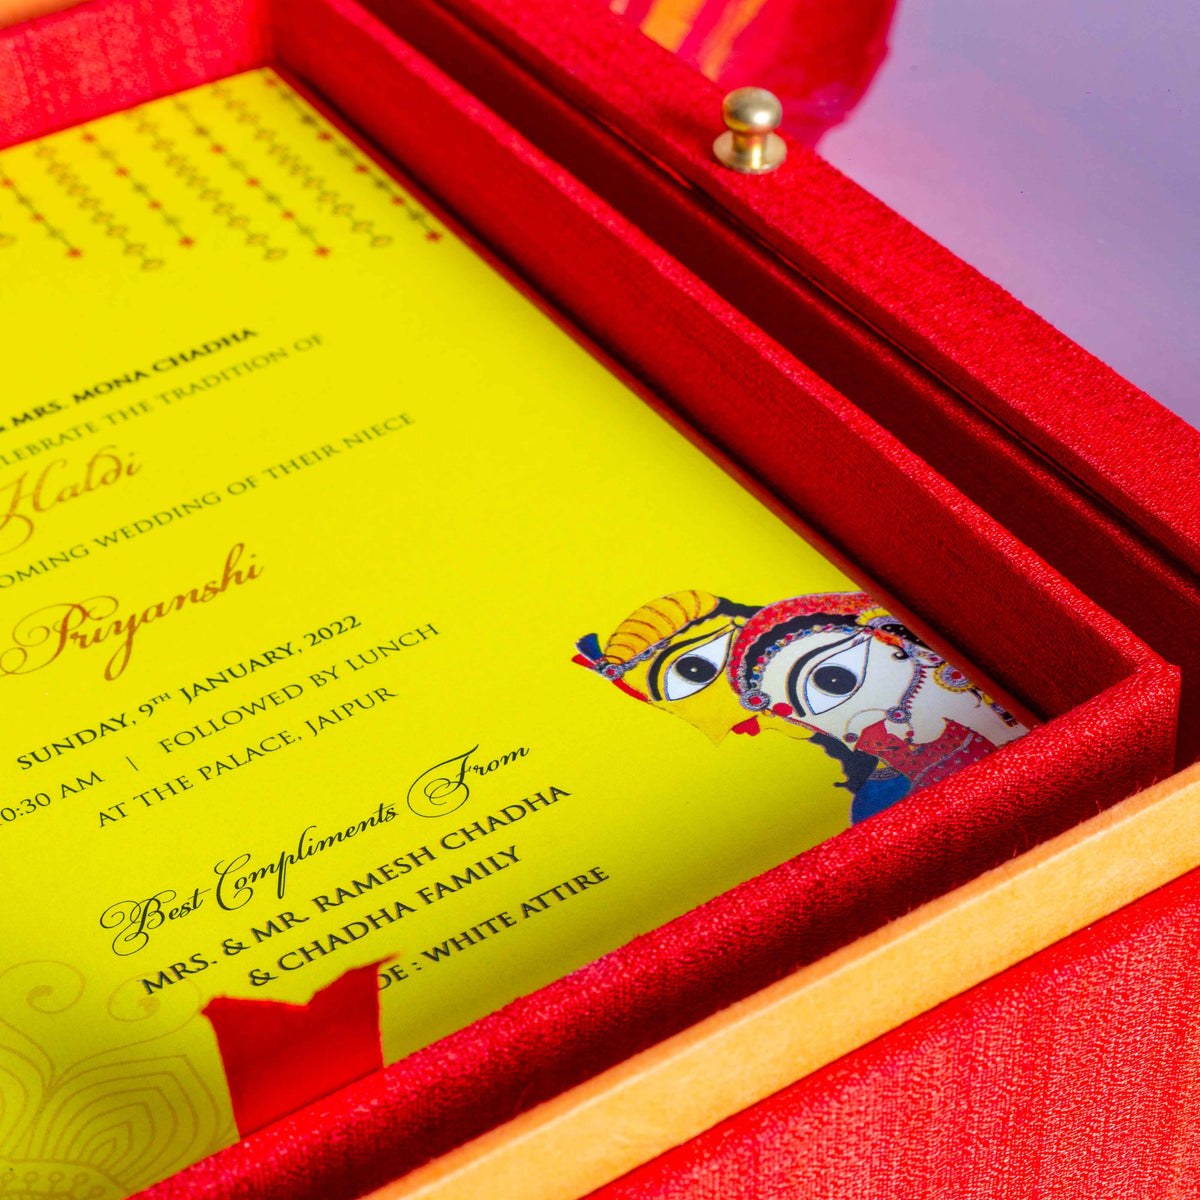 & MRS. MONA CHADHA
CELEBRATE THE TRADITION OF
Haldi
COMING WEDDING OF THEIR NIECE
Priyanshi
SUNDAY, 9TH JANUARY, 2022
0:30 AM | FOLLOWED BY LUNCH
AT THE PALACE, JAIPUR
Best Compliments From
MRS. & MR. RAMESH CHADHA
& CHADHA FAMILY
DE : WHITE ATTIRE